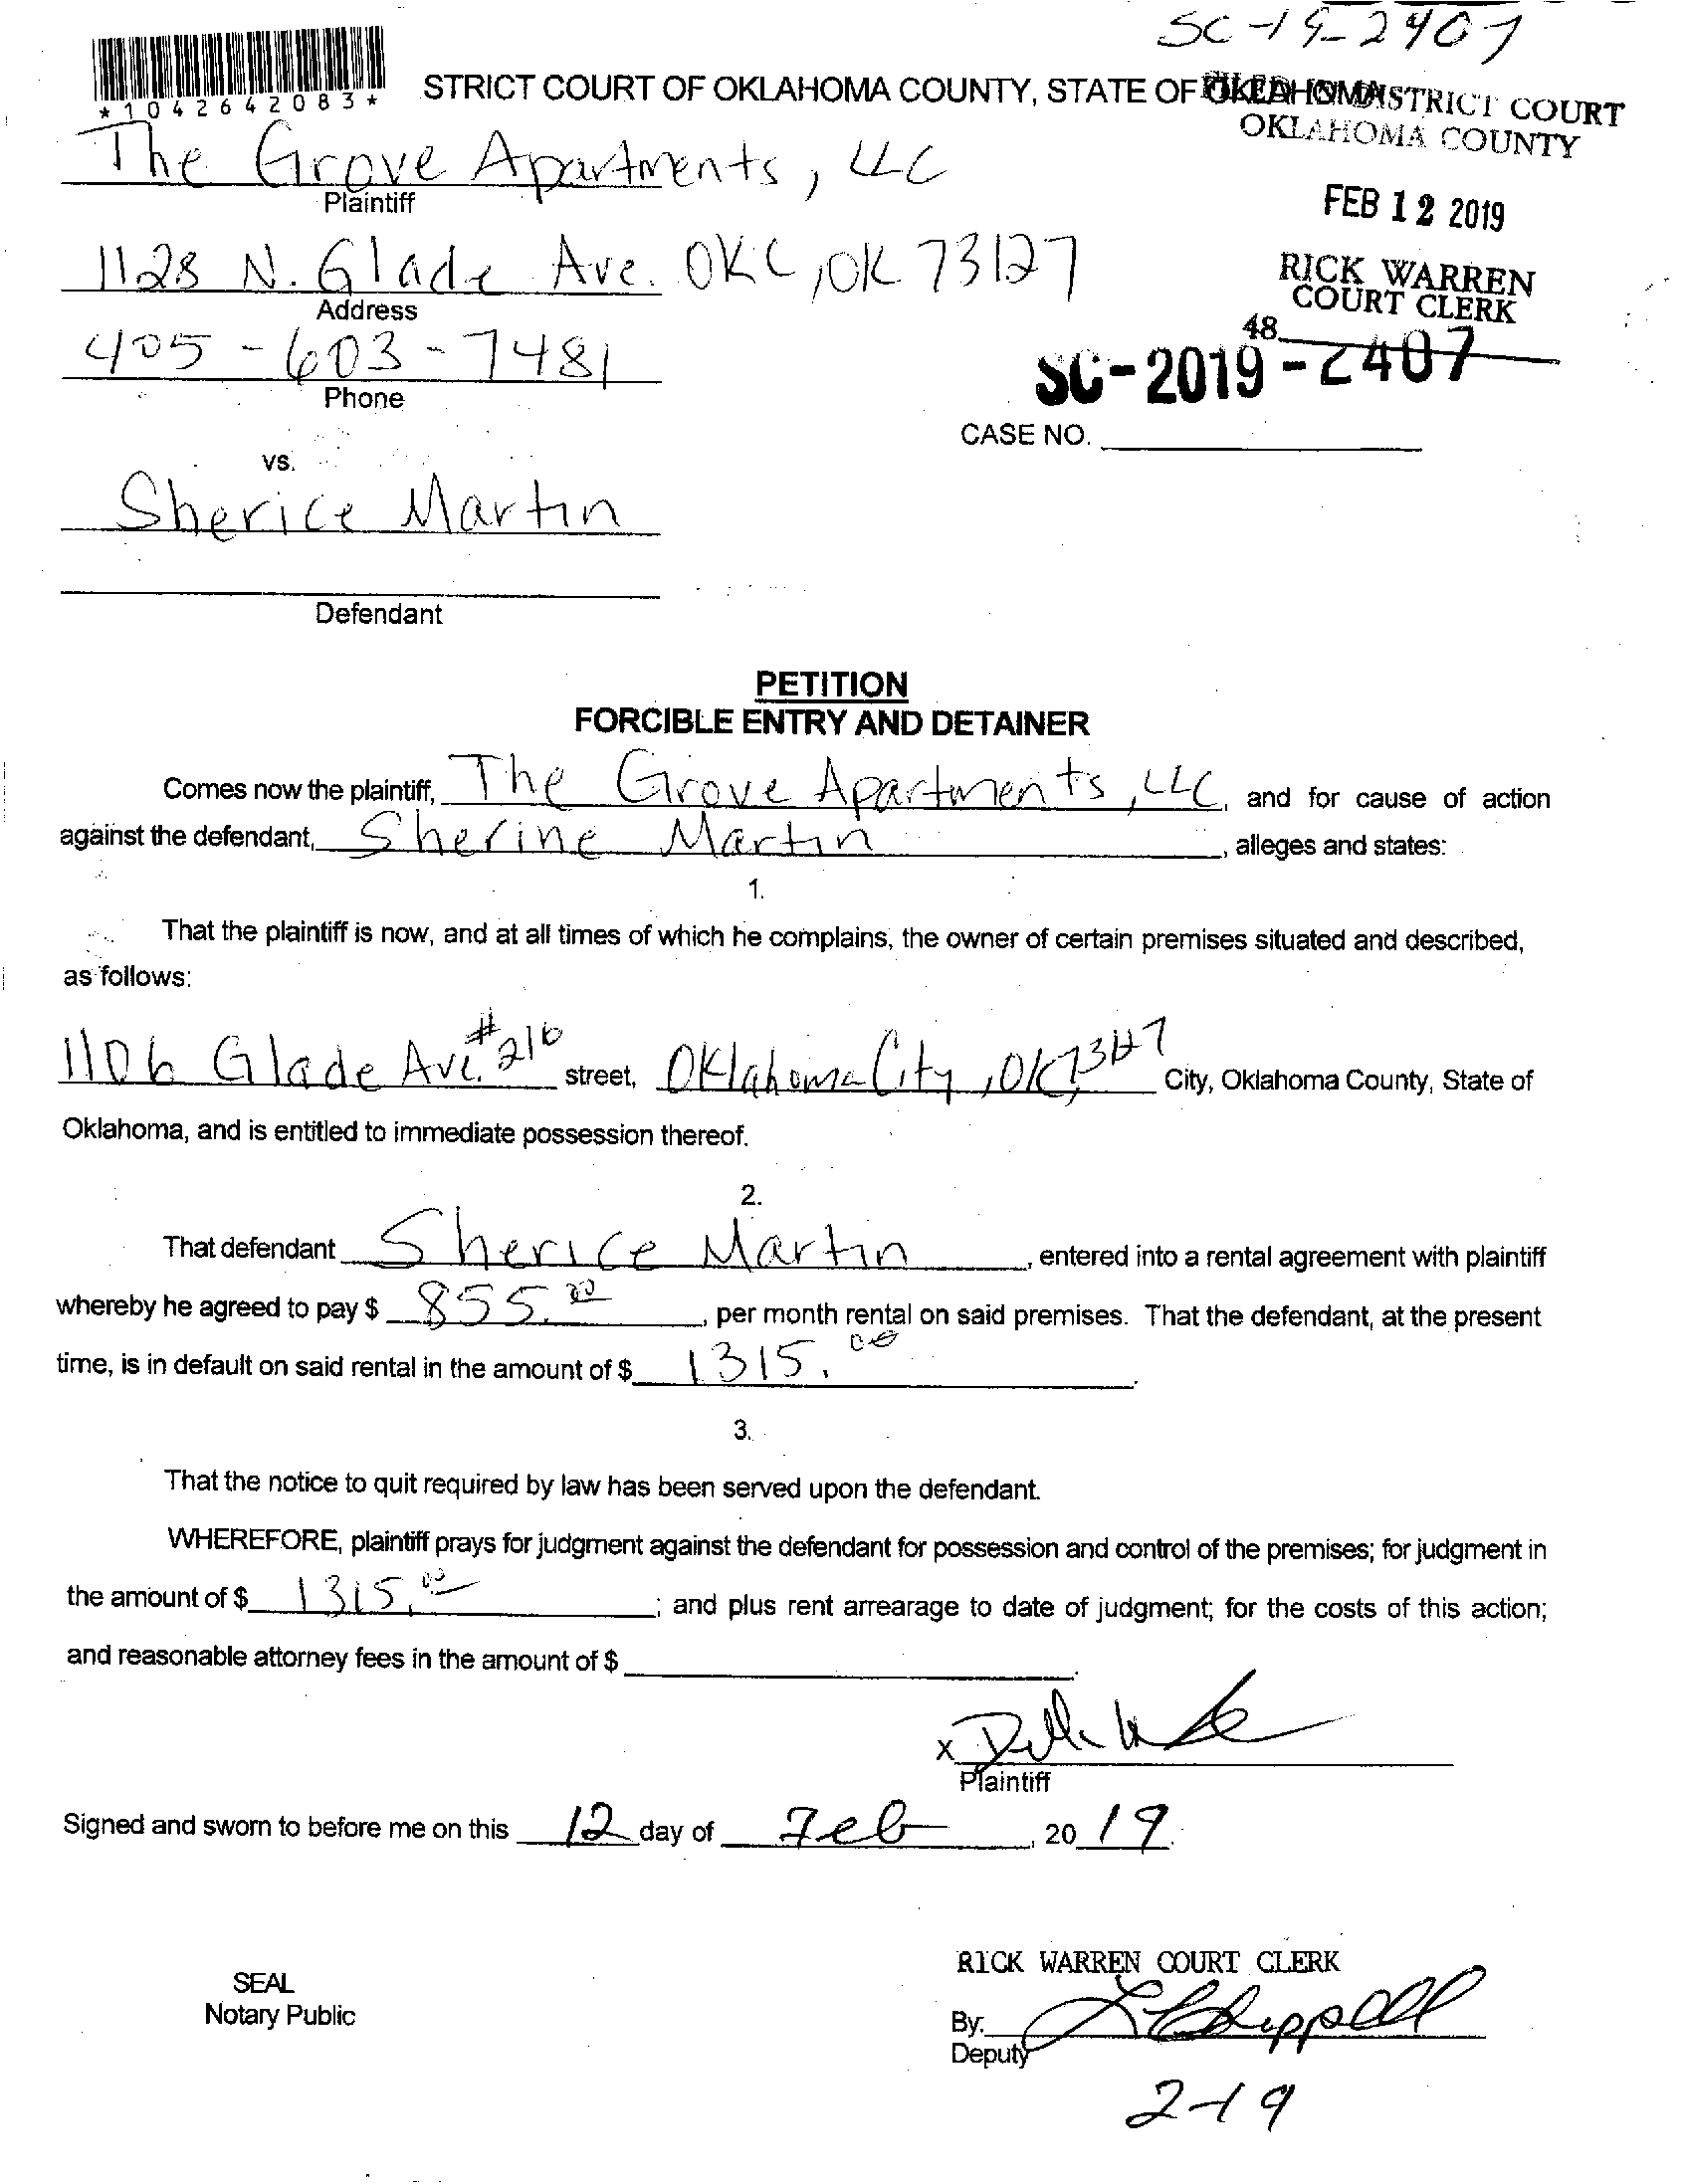 SC-19-2407
*1042642083*
STRICT COURT OF OKLAHOMA COUNTY, STATE OF OKLAHOMA
FILED IN DISTRICT COURT
OKLAHOMA COUNTY
The Grove Apartments, LLC
Plaintiff
FEB 12 2019
1128 N. Glade Ave. OKC, OK 73127
Address
RICK WARREN
COURT CLERK
405-603-7481
Phone
48
SC-2019-2407
CASE NO.
vs.
Sherice Martin
Defendant
PETITION
FORCIBLE ENTRY AND DETAINER
Comes now the plaintiff, The Grove Apartments, LLC, and for cause of action
against the defendant, Sherine Martin, alleges and states:
1.
That the plaintiff is now, and at all times of which he complains, the owner of certain premises situated and described,
as follows:
1106 Glade Ave. #216 street, Oklahoma City, OK, 73127 City, Oklahoma County, State of
Oklahoma, and is entitled to immediate possession thereof.
2.
That defendant Sherice Martin, entered into a rental agreement with plaintiff
whereby he agreed to pay $ 855.00, per month rental on said premises. That the defendant, at the present
time, is in default on said rental in the amount of $ 1315.00.
3.
That the notice to quit required by law has been served upon the defendant.
WHEREFORE, plaintiff prays for judgment against the defendant for possession and control of the premises; for judgment in
the amount of $ 1315.00; and plus rent arrearage to date of judgment; for the costs of this action;
and reasonable attorney fees in the amount of $ .
X
Plaintiff
Signed and sworn to before me on this 12 day of Feb, 20 19.
RICK WARREN COURT CLERK
SEAL
Notary Public
By:
Deputy
2-19